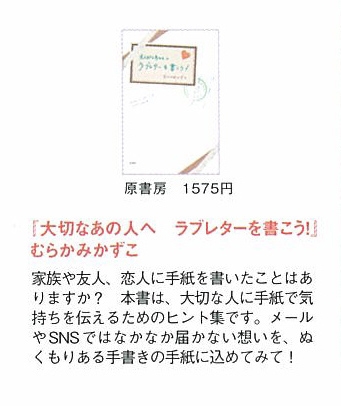 大切なあの人へ
ラブレターを書こう!
原書房 1575円
『大切なあの人へ ラブレターを書こう!』
むらかみかずこ
家族や友人、恋人に手紙を書いたことはあ
りますか? 本書は、大切な人に手紙で気
持ちを伝えるためのヒント集です。メール
やSNSではなかなか届かない想いを、ぬ
くもりある手書きの手紙に込めてみて!